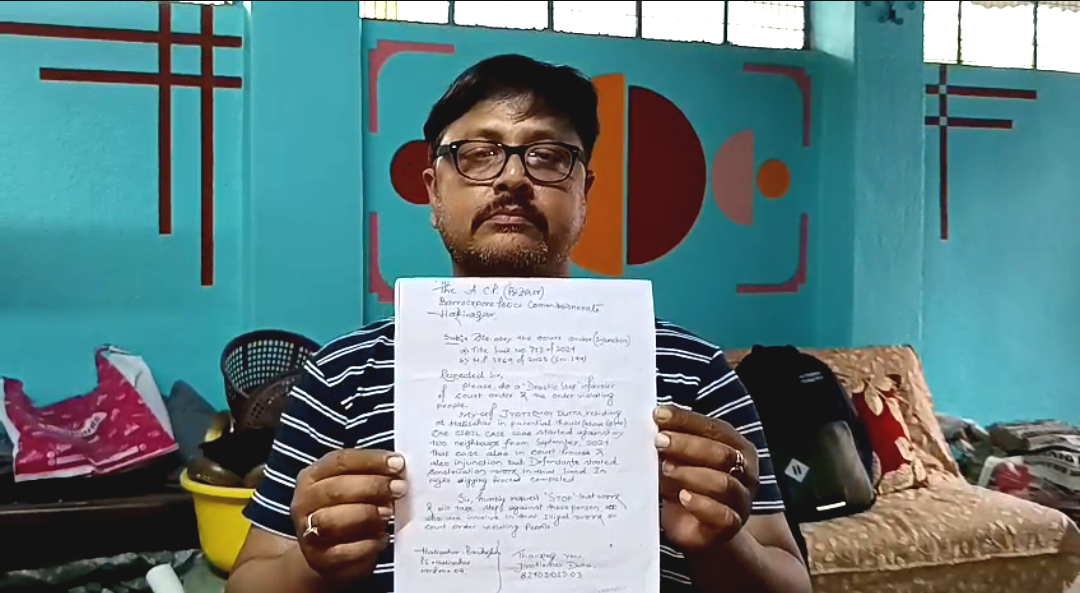 The A.C.P. (Bizpur)
Barrackpore Police Commissionerate
Halinagar
Sub: Dis obey the court order (Injunction)
a) Title Suit No. 713 of 2024
b) M.P. 3769 of 2025 (Sec. 144)
Respected Sir,
Please, do a "Drastic Step" infavour
of court order & the order violating
people.
My-self Jyotirmoy Dutta, residing
at Halisahar in parental house
One civil case case started against my
two neighbours from September, 2024
that case also in court process &
also injunction but Defendants started
construction work in that land. In
night process completed
Sir, humbly request "STOP" that work
& also take steps against those person
who are involve in that illegal work or
court order violating People.
Halisahar
PS Halisahar
Thanking you
Dutta